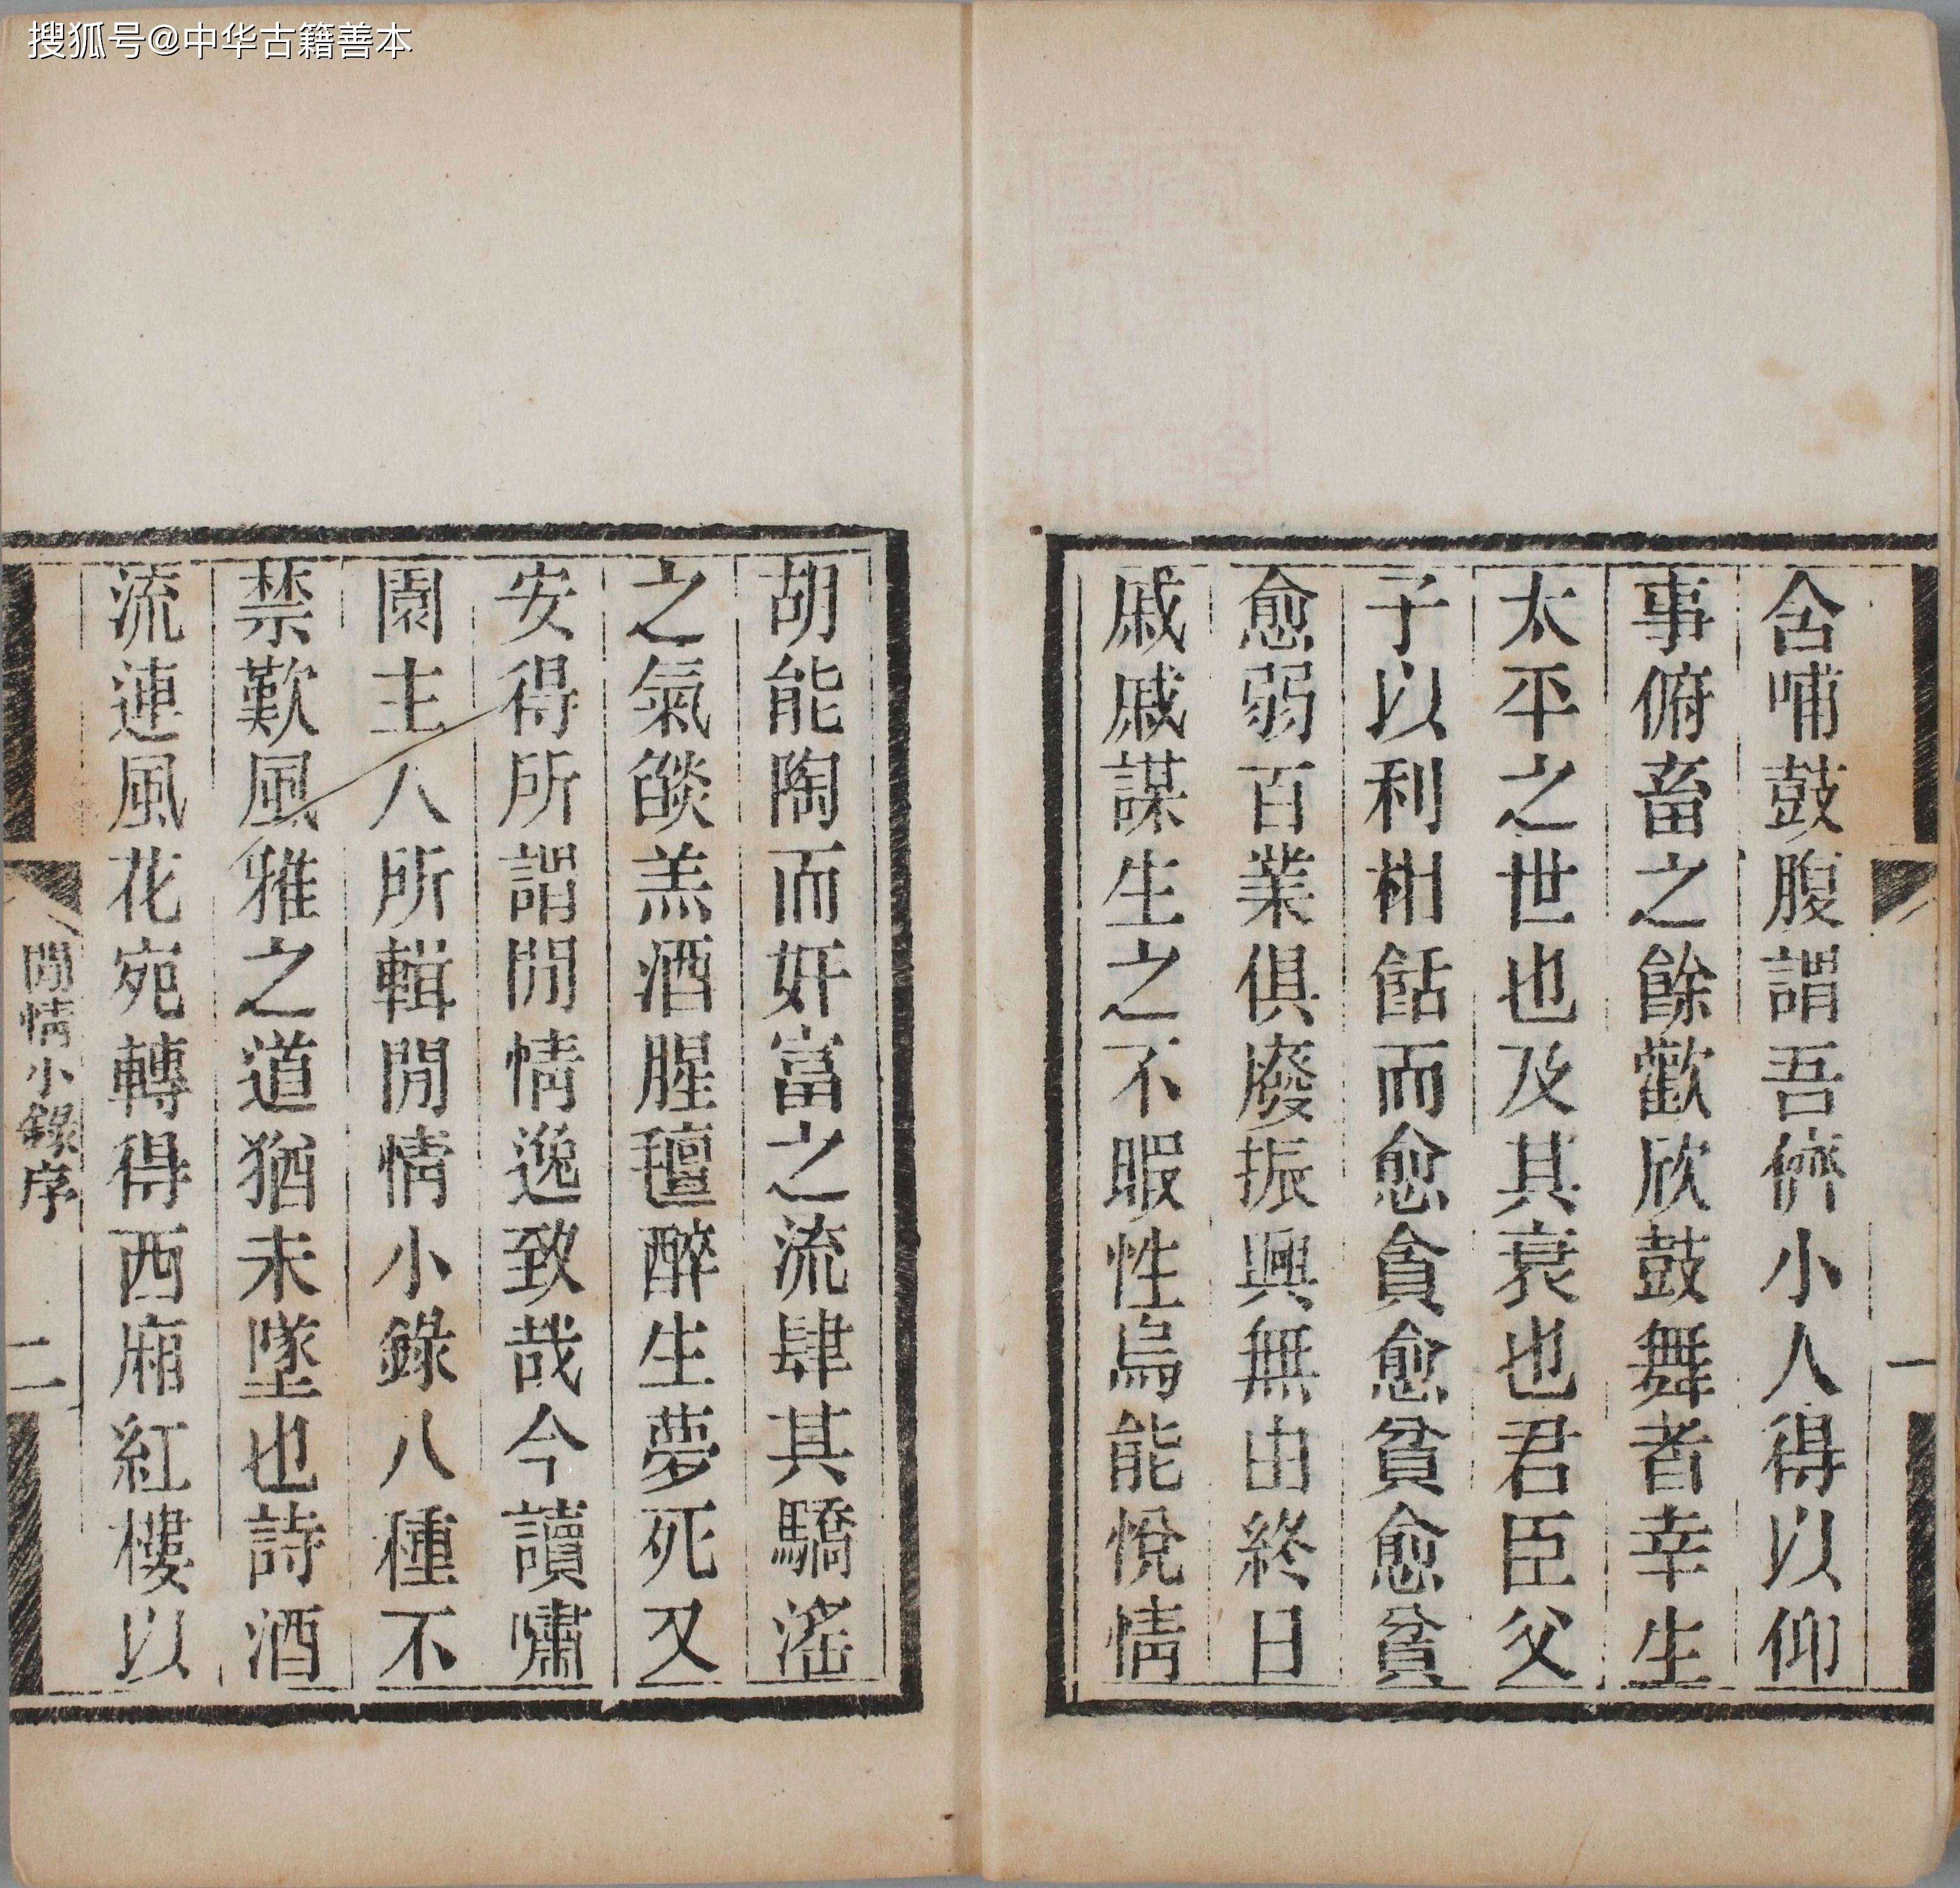 搜狐号@中华古籍善本
一
含哺鼓腹謂吾儕小人得以仰
事俯畜之餘歡欣鼓舞者幸生
太平之世也及其衰也君臣父
子以利相餂而愈貪愈貧愈貧
愈弱百業俱廢振興無由終日
戚戚謀生之不暇性烏能悅情
胡能陶而奸富之流肆其驕淫
之氣燄羔酒腥羶醉生夢死又
安得所謂閒情逸致哉今讀嘯
園主人所輯閒情小錄八種不
禁歎風雅之道猶未墜也詩酒
流連風花宛轉得西廂紅樓以
閒情小錄序
二